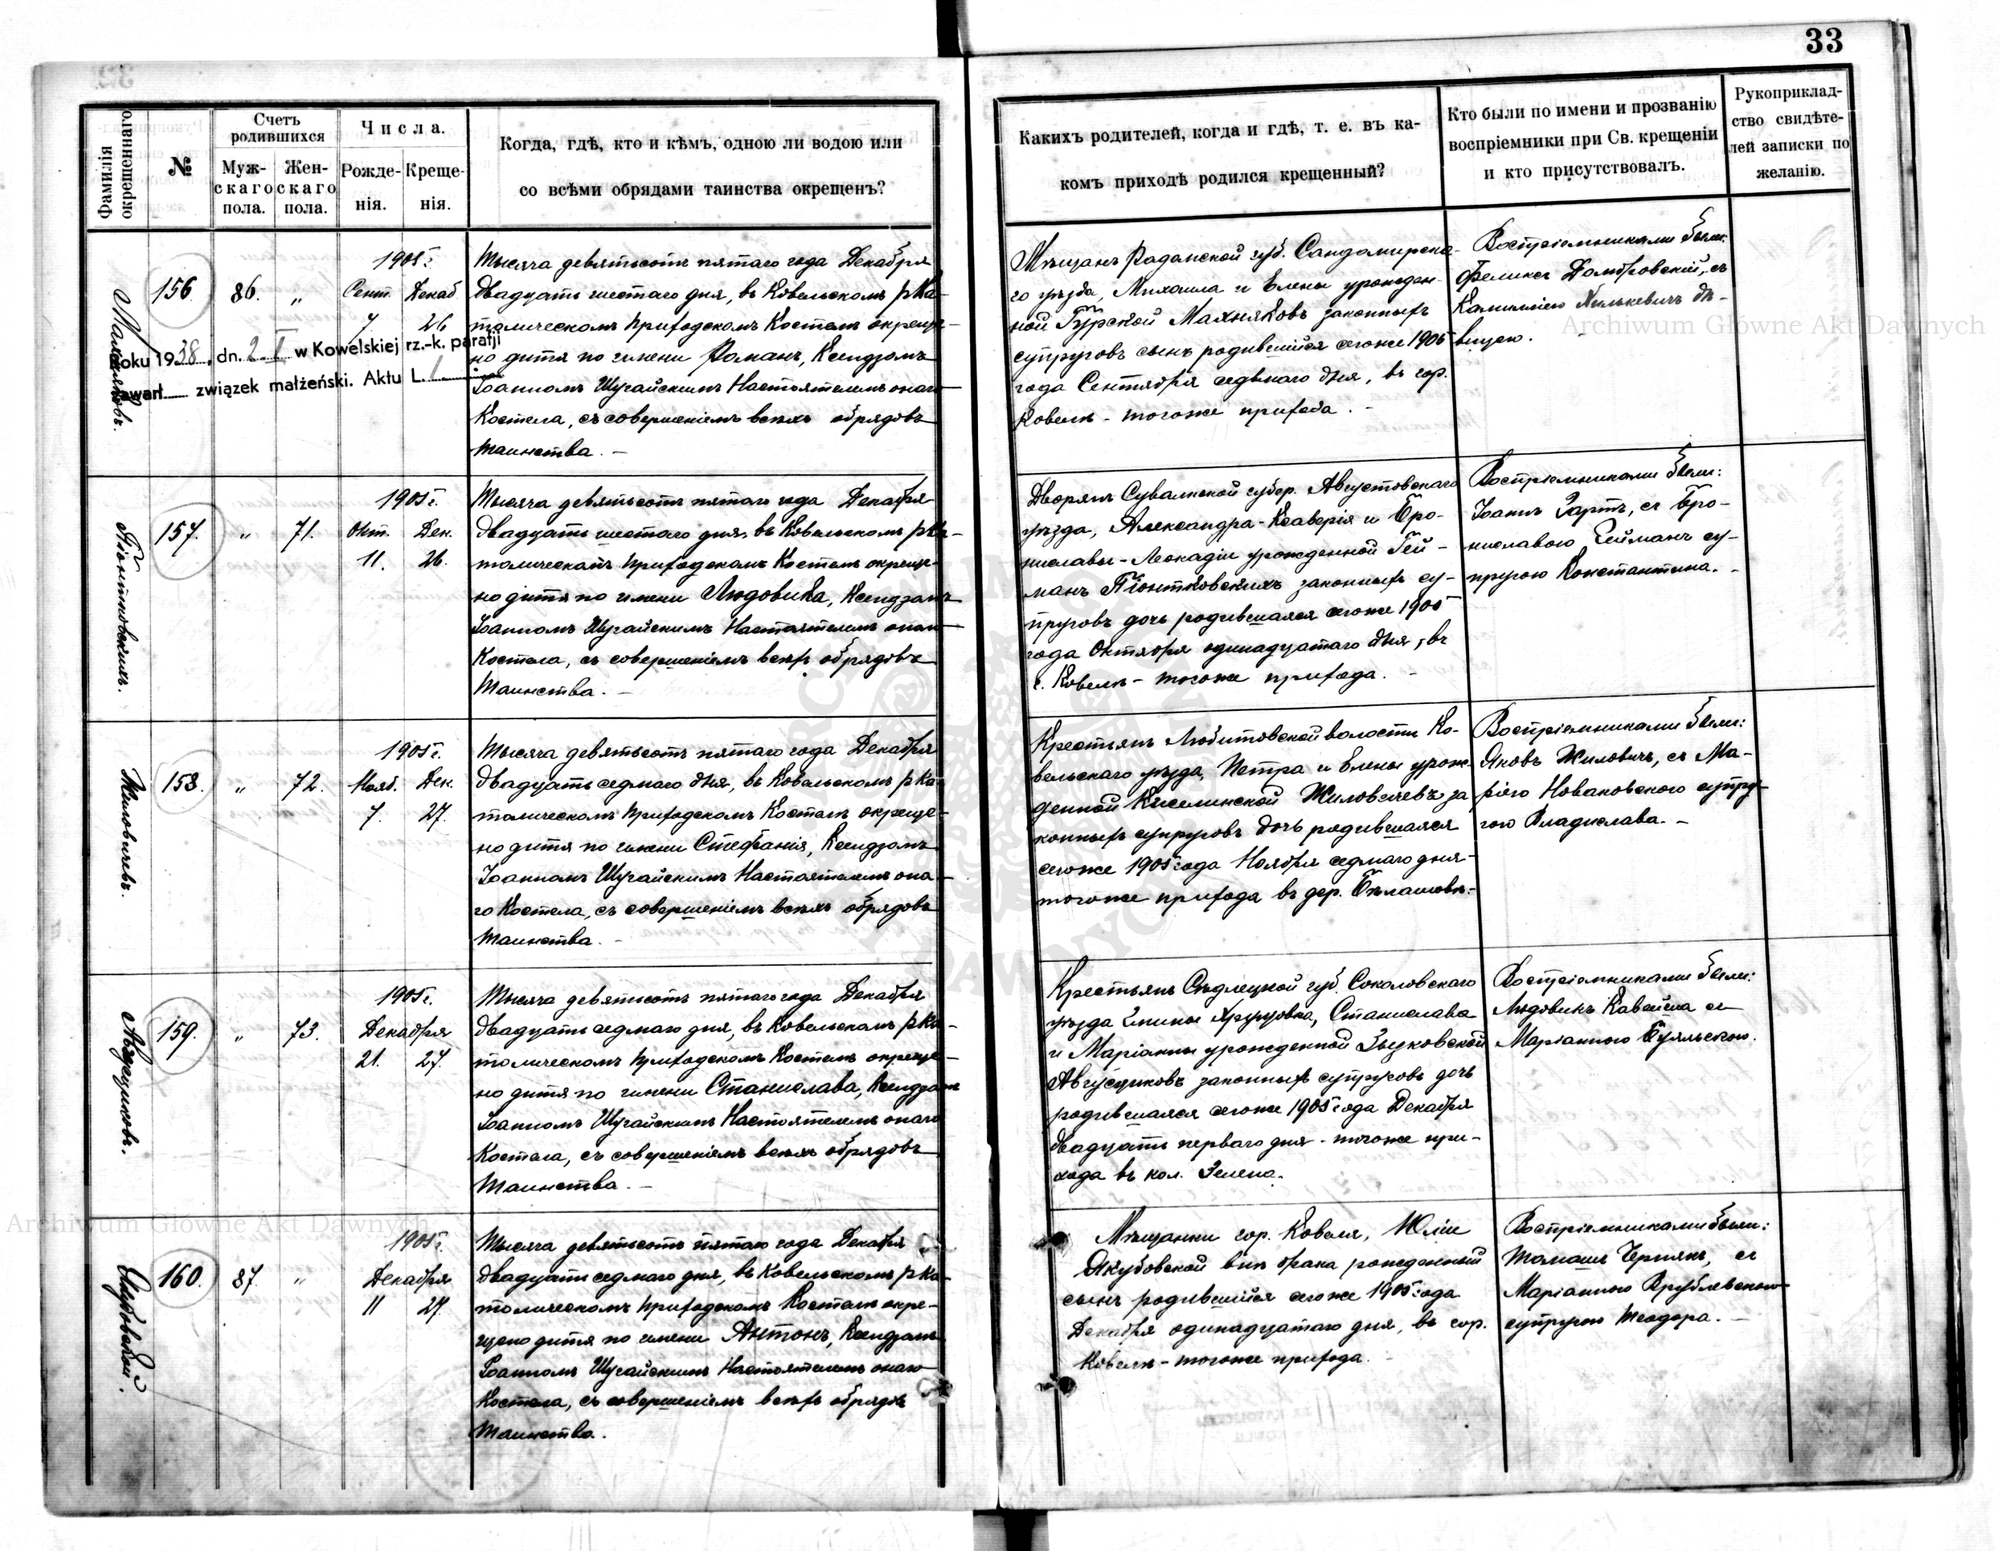 33
Фамилія окрещеннаго.
№
Счетъ родившихся
Муж-скаго пола.
Жен-скаго пола.
Числа.
Рожде-нія.
Креще-нія.
Когда, гдѣ, кто и кѣмъ, одною ли водою или
со всѣми обрядами таинства окрещенъ?
Какихъ родителей, когда и гдѣ, т. е. въ ка-
комъ приходѣ родился крещенный?
Кто были по имени и прозванію
воспріемники при Св. крещеніи
и кто присутствовалъ.
Рукоприклад-
ство свидѣте-
лей записки по
желанію.
Махняковъ.
156.
86.
"
1905 г.
Сент. Декаб
7 26
Roku 1938, dn. 2. I w Kowelskiej rz.-k. parafji
zawarł związek małżeński. Aktu L. 1
Тысяча девятьсотъ пятаго года Декабря
двадцать шестаго дня, въ Ковельскомъ р ка-
толическомъ приходскомъ Костелѣ окреще-
но дитя по имени Романъ, Ксендзомъ
Іоанномъ Шугайскимъ Настоятелемъ онаго
Костела, съ совершеніемъ всѣхъ обрядовъ
таинства. –
Мѣщанъ Радомской губ. Сандомирска-
го уѣзда, Михаила и Елены урожден-
ной Гурской Махняковъ законныхъ
супруговъ сынъ родившійся сегоже 1905
года Сентября седьмаго дня, въ гор.
Ковелѣ - тогоже прихода. -
Воспріемниками были:
Феликсъ Домбровскій, съ
Камиллею Милькевичъ дѣ-
вицею.
Піонтковскихъ.
157.
"
71.
1905 г.
Окт. Дек.
11. 26.
Тысяча девятьсотъ пятаго года Декабря
двадцать шестаго дня, въ Ковельскомъ р ка-
толическомъ приходскомъ Костелѣ окреще-
но дитя по имени Людовика, Ксендзомъ
Іоанномъ Шугайскимъ Настоятелемъ онаго
Костела, съ совершеніемъ всѣхъ обрядовъ
таинства. –
Дворянъ Сувалкской губер. Августовскаго
уѣзда, Александра-Ксаверія и Бро-
ниславы-Леокадіи урожденной Гей-
манъ Піонтковскихъ законныхъ су-
пруговъ дочь родившаяся сегоже 1905
года Октября одинадцатаго дня, въ
г. Ковелѣ - тогоже прихода. -
Воспріемниками были:
Іоаннъ Гартъ, съ Бро-
ниславою Гейманъ су-
пругою Константина. -
Жиловичевъ.
158.
"
72.
1905 г.
Нояб. Дек.
7. 27.
Тысяча девятьсотъ пятаго года Декабря
двадцать седмаго дня, въ Ковельскомъ р ка-
толическомъ приходскомъ Костелѣ окреще-
но дитя по имени Стефанія, Ксендзомъ
Іоанномъ Шугайскимъ Настоятелемъ она-
го Костела, съ совершеніемъ всѣхъ обрядовъ
таинства. –
Крестьянъ Любитовской волости Ко-
вельскаго уѣзда, Петра и Елены урож-
денной Киселинской Жиловичевъ за
конныхъ супруговъ дочь родившаяся
сегоже 1905 года Ноября седмаго дня -
тогоже прихода въ дер. Бѣлашовъ. -
Воспріемниками были:
Яковъ Жиловичъ, съ Ма-
ріею Новаковскою супру-
гою Владислава. –
159.
"
73.
1905 г.
Декабря
21. 27.
Тысяча девятьсотъ пятаго года Декабря
двадцать седмаго дня, въ Ковельскомъ р ка-
толическомъ приходскомъ Костелѣ окреще-
но дитя по имени Станислава, Ксендзомъ
Іоанномъ Шугайскимъ Настоятелемъ онаго
Костела, съ совершеніемъ всѣхъ обрядовъ
таинства. –
Крестьянъ Сѣдлецкой губ. Соколовскаго
уѣзда гмины Станислава
и Маріанны урожденной Зыковской
законныхъ супруговъ дочь
родившаяся сегоже 1905 года Декабря
двадцать перваго дня - тогоже при-
хода въ кол. Зелена.
Воспріемниками были:
Людовикъ съ
Маріанною
Якубовской.
160.
87.
"
1905 г.
Декабря
11 27.
Тысяча девятьсотъ пятаго года Декабря
двадцать седмаго дня, въ Ковельскомъ р ка-
толическомъ приходскомъ Костелѣ окре-
щено дитя по имени Антонъ, Ксендзомъ
Іоанномъ Шугайскимъ Настоятелемъ онаго
Костела, съ совершеніемъ всѣхъ обрядовъ
таинства.
Мѣщанки гор. Ковеля, Юліи
Якубовской внѣ брака рожденный
сынъ родившійся сегоже 1905 года
Декабря одинадцатаго дня, въ гор.
Ковелѣ - тогоже прихода.
Воспріемниками были:
Томашъ Чернякъ, съ
Маріанною Врублевскою
супругою Теодора. –
Archiwum Główne Akt Dawnych
Archiwum Główne Akt Dawnych